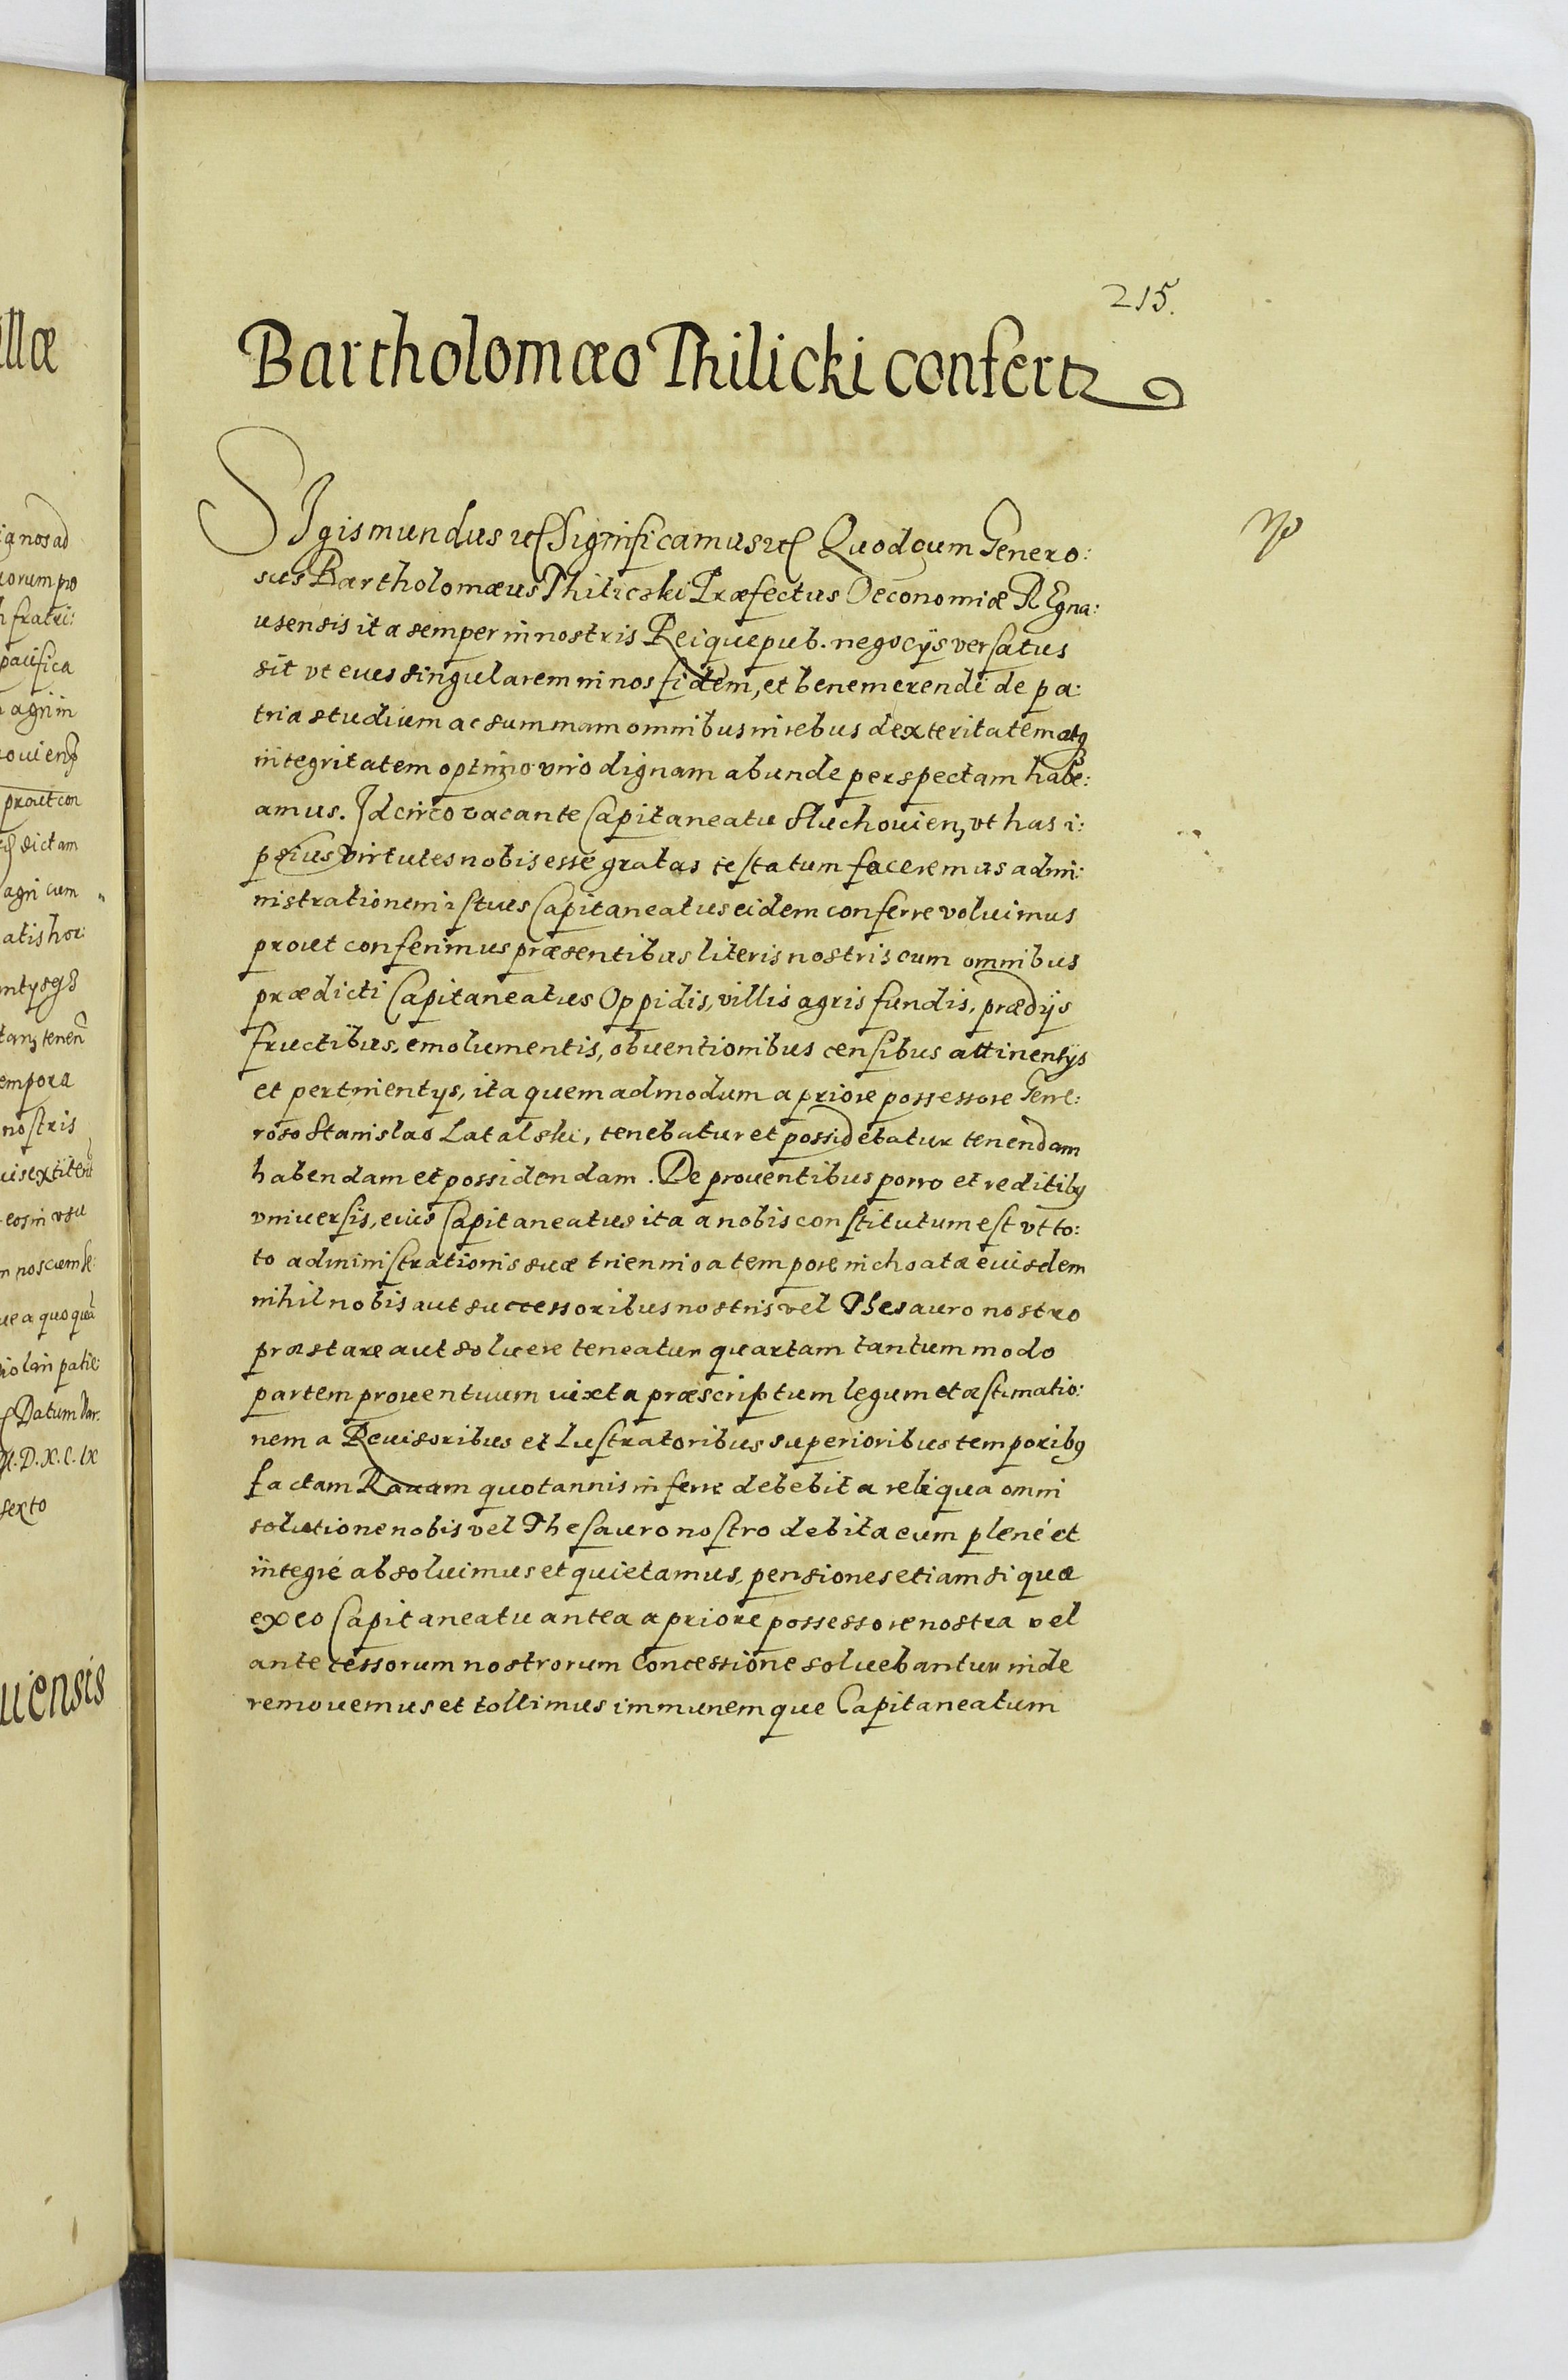 215.
Bartholomæo Thilicki confert
SIgismundus etc Significamus etc Quod cum Genero:
sus Bartholomæus Thilicski Præfectus Oeconomiæ REgna:
usensis ita semper in nostris Reiquepub. negocijs versatus
sit vt eues singularem in nos fidem, et benemerendi de pa:
tria studium ac summam omnibus in rebus dexteritatem atq
integritatem optimo viro dignam abunde perspectam habe:
amus. Idcirco vacante Capitaneatu Sluchouien, vt has i:
psius virtutes nobis esse gratas testatum faceremus admi:
nistrationem istius Capitaneatus eidem conferre voluimus
prout conferimus præsentibus literis nostris cum omnibus
prædicti Capitaneatus Oppidis, villis agris fundis, prædijs
fructibus, emolumentis, obuentionibus censibus attinentijs
et pertinentijs, ita quemadmodum a priore possessore Gene:
roso Stanislao Latalski, tenebatur et possidebatur tenendam
habendam et possidendam. De prouentibus porro et reditibus
vniuersis, eius Capitaneatus ita a nobis constitutum est vt to:
to administrationis suæ triennio a tempore inchoatæ eiusdem
nihil nobis aut successoribus nostris vel Thesauro nostro
præstare aut soluere teneatur quartam tantummodo
partem prouentuum iuxta præscriptum legum et æstimatio:
nem a Reuisoribus et Lustratoribus superioribus temporibus
factam Rauam quotannis inferre debebit a reliqua omni
solutione nobis vel Thesauro nostro debita eum plené et
integré absoluimus et quietamus, pensiones etiam si quæ
ex eo Capitaneatu antea a priore possessore nostra vel
antecessorum nostrorum Concessione soluebantur inde
remouemus et tollimus immunemque Capitaneatum